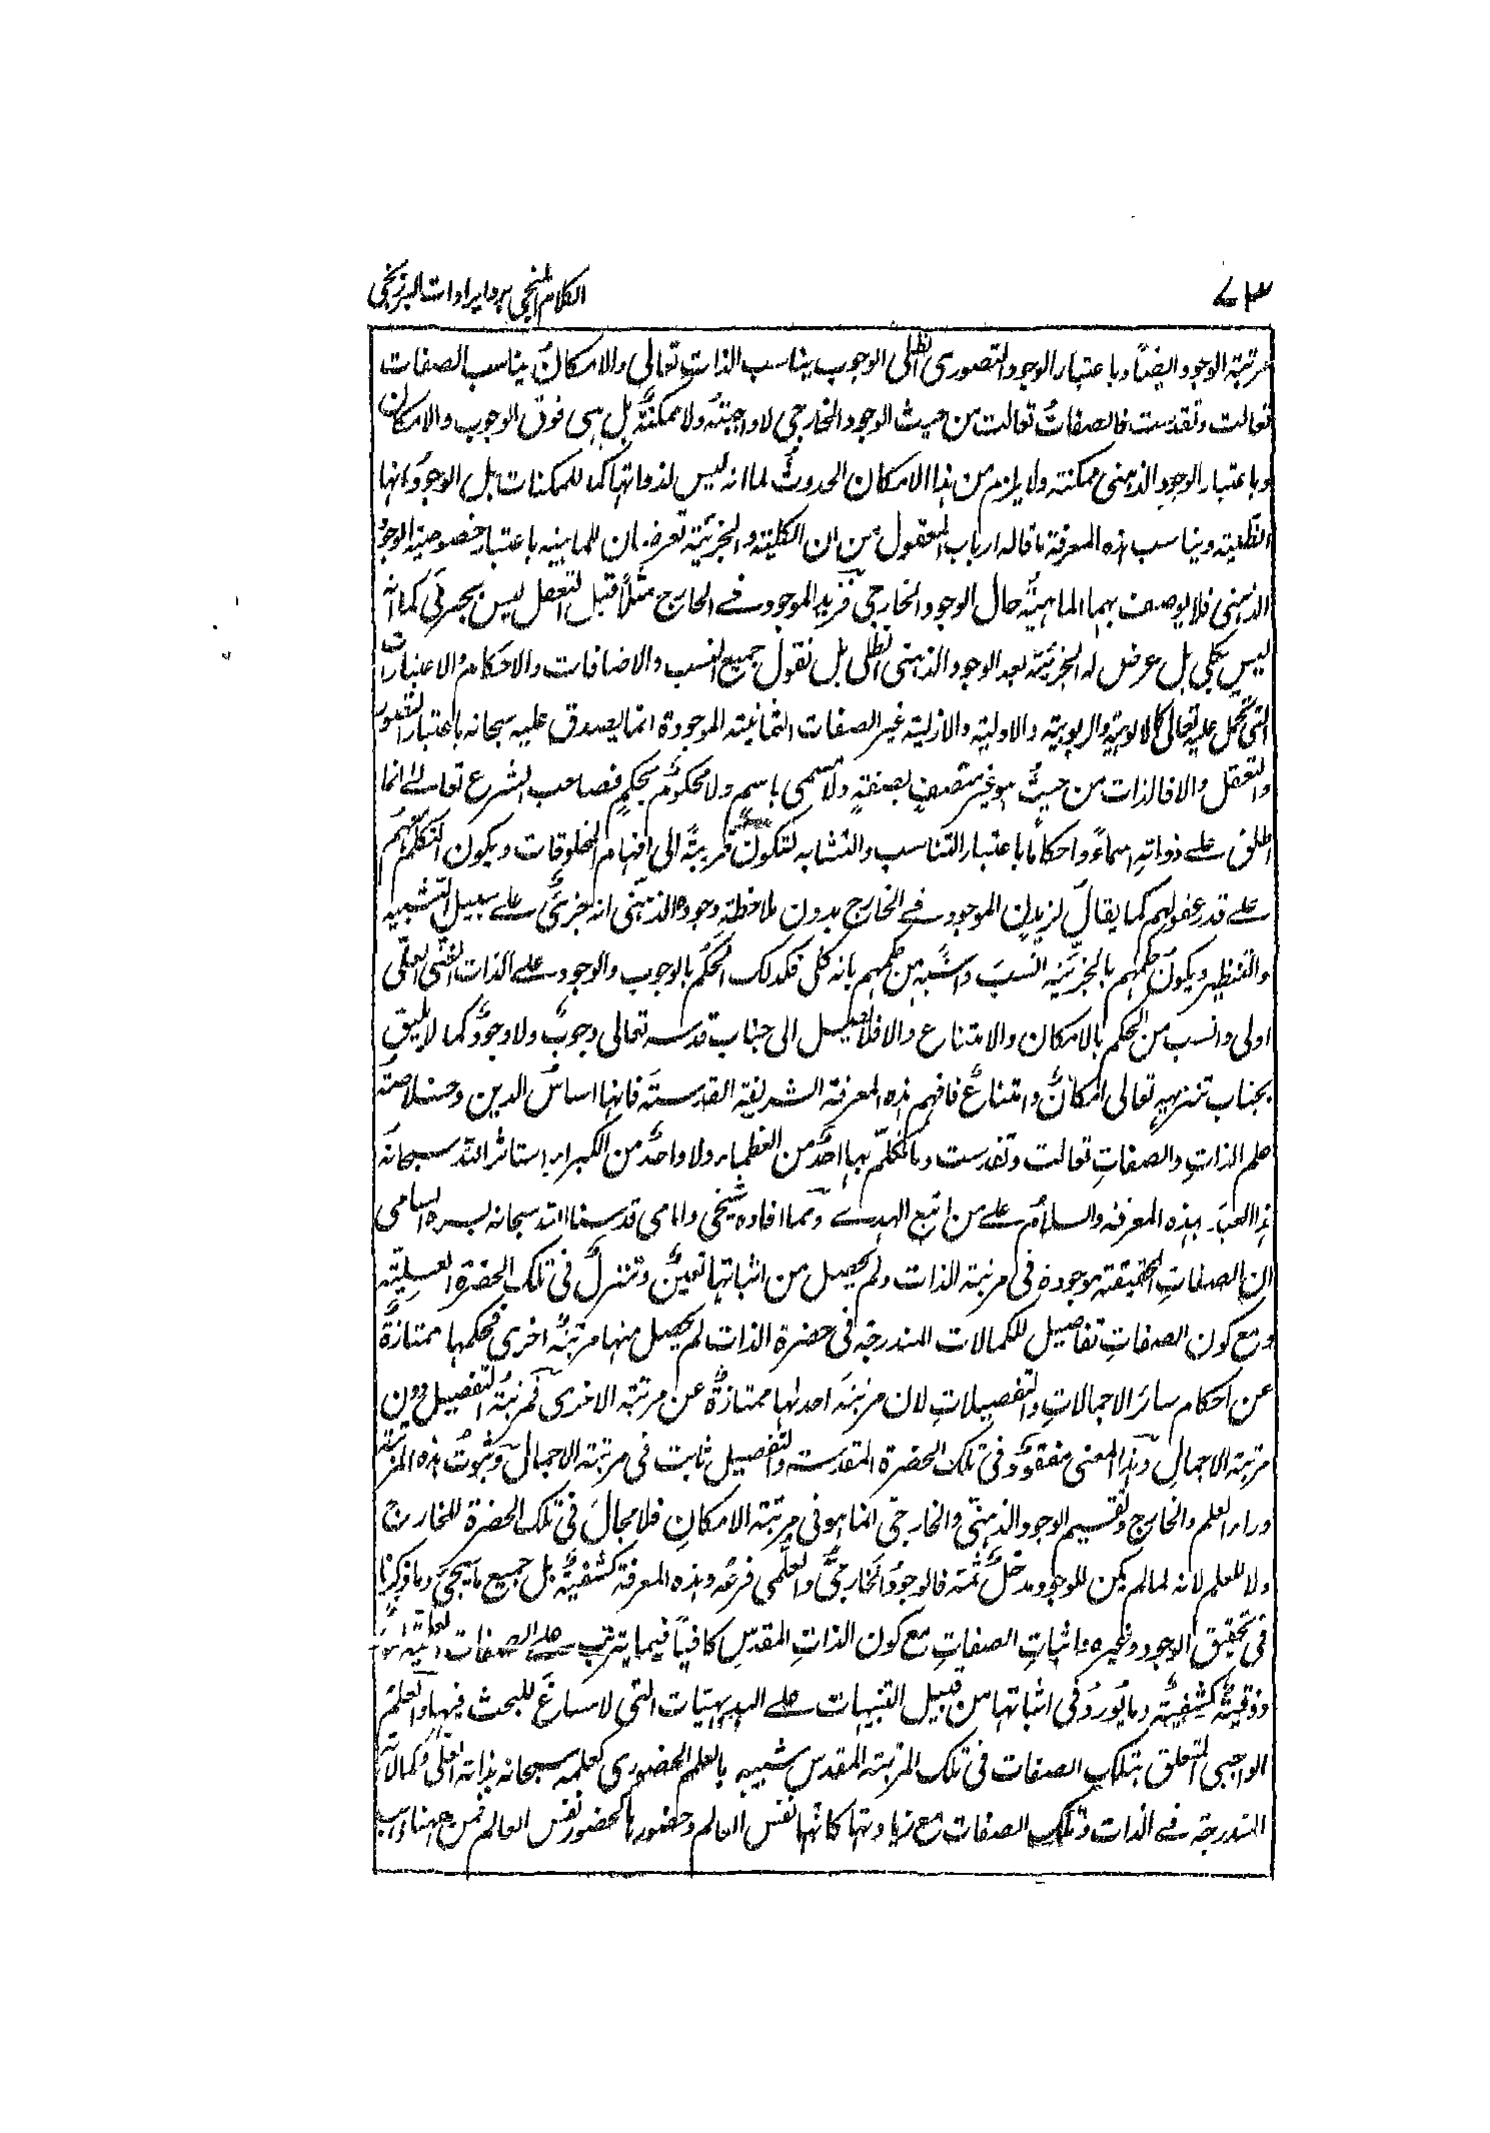 ٧٣
الكلام المنجى برد ايرادات البرزنجى
مرتبة الوجود ايضًا وباعتبار الوجود التصورى الظلى الوجوب يناسب الذات تعالى والامكانُ يناسب الصفات
تعالت وتقدست فالصفاتُ تعالت من حيث الوجود الخارجى لا واجبةٌ ولا ممكنةٌ بل هى فوق الوجوب والامكان
وباعتبار الوجود الذهنى ممكنة ولا يلزم من هذا الامكان الحدوثُ لما انه ليس لذواتها كما للممكنات بل الوجوداتها
الظلية ويناسب هذه المعرفة ما قاله ارباب المعقول من ان الكلية والجزئية تعرضان للماهية باعتبار خصوصية الوجود
الذهنى فلا يوصف بهما الماهيةُ حال الوجود الخارجى فزيد الموجود فى الخارج مثلًا قبل التعقل ليس بجزئى كما انه
ليس بكلى بل عرض له الجزئية بعد الوجود الذهنى الظلى بل نقول جميع النسب والاضافات والاحكام والاعتبارات
التى تحمل عليه تعالى كالالوهية والربوبية والاولية والازلية غير الصفات الثمانية الموجودة انما يصدق عليه سبحانه باعتبار التصور
والتعقل والا فالذات من حيثُ هو غير متصفٍ بصفةٍ ولا مسمى باسمٍ ولا محكومٌ بحكمٍ فصاحب الشرع تعالى انما
اطلق على ذواته اسماءً واحكامًا باعتبار التناسب والتشابه لتكونَ قريبةً الى افهام المخلوقات ويكون التكلم معهم
على قدر عقولهم كما يقال لزيدن الموجود فى الخارج بدون ملاحظة وجوده الذهنى انه جزئى على سبيل التشبيه
والتنظير ويكون حكمهم بالجزئية انسبَ واشبهَ من حكمهم بانه كلى فكذلك الحكم بالوجوب والوجود على الذات الغنى العلى
اولى وانسب من الحكم بالامكان والامتناع والا فلا يصل الى جناب قدسه تعالى وجوبٌ ولا وجودٌ كما لا يليق
بجناب تنزيهه تعالى امكانٌ وامتناعٌ فافهم هذه المعرفة الشريفة القدسيةَ فانها اساسُ الدين وخلاصة
علم الذات والصفاتِ تعالت وتقدست وما تكلّم بها احدٌ من العظماء ولا واحدٌ من الكبراء استاثر الله سبحانه
هذا العبد بهذه المعرفة والسلام على من اتبع الهدى ومما افاده شيخى وامامى قدسنا الله سبحانه بسره السامى
ان الصفات الحقيقية موجودة فى مرتبة الذات ولم يحصل من اثباتها تعينٌ وتنزلٌ فى تلك الحضرة العلية
ومع كون الصفاتِ تفاصيل للكمالات المندرجة فى حضرة الذات لم يحصل منها مرتبةٌ اخرى فحكمها ممتازةٌ
عن احكام سائر الاجمالاتِ والتفصيلاتِ لان مرتبة احدٰها ممتازةٌ عن مرتبة الاخرى فمرتبةُ التفصيل دون
مرتبة الاجمال وهذا المعنى مفقودٌ فى تلك الحضرة المقدسة والتفصيل ثابت فى مرتبة الاجمال وثبوتُ هذه المرتبة
وراء العلم والخارج وتقسيم الوجود الذهنى والخارجى انما هو فى مرتبة الامكانِ فلا مجالَ فى تلك الحضرة للخارج
ولا للعلم لانه لما لم يكن للوجود مدخلٌ ثمة فالوجودُ الخارجىُّ والعلمى فرعُه وهذه المعرفة كشفيةٌ بل جميع ما يجئ وما ذكرنا
فى تحقيق الوجود وغيره واثباتِ الصفاتِ مع كون الذات المقدسِ كافيًا فيما يترتب على الصفات
ذوقيةٌ كشفيةٌ وما يُوردُ فى اثباتها من قبيل التنبيهات على البديهيات التى لا مساغَ للبحث فيها والعلمُ
الواجبى المتعلق بتلك الصفات فى تلك المرتبة المقدس شبيه بالعلم الحضورى كعلمه سبحانه بذاته اعلى وكمالاته
المندرجة فى الذات وتلك الصفات مع زيادتها كانّها نفس العالم وحضورها كحضور نفس العالم فمن ههنا